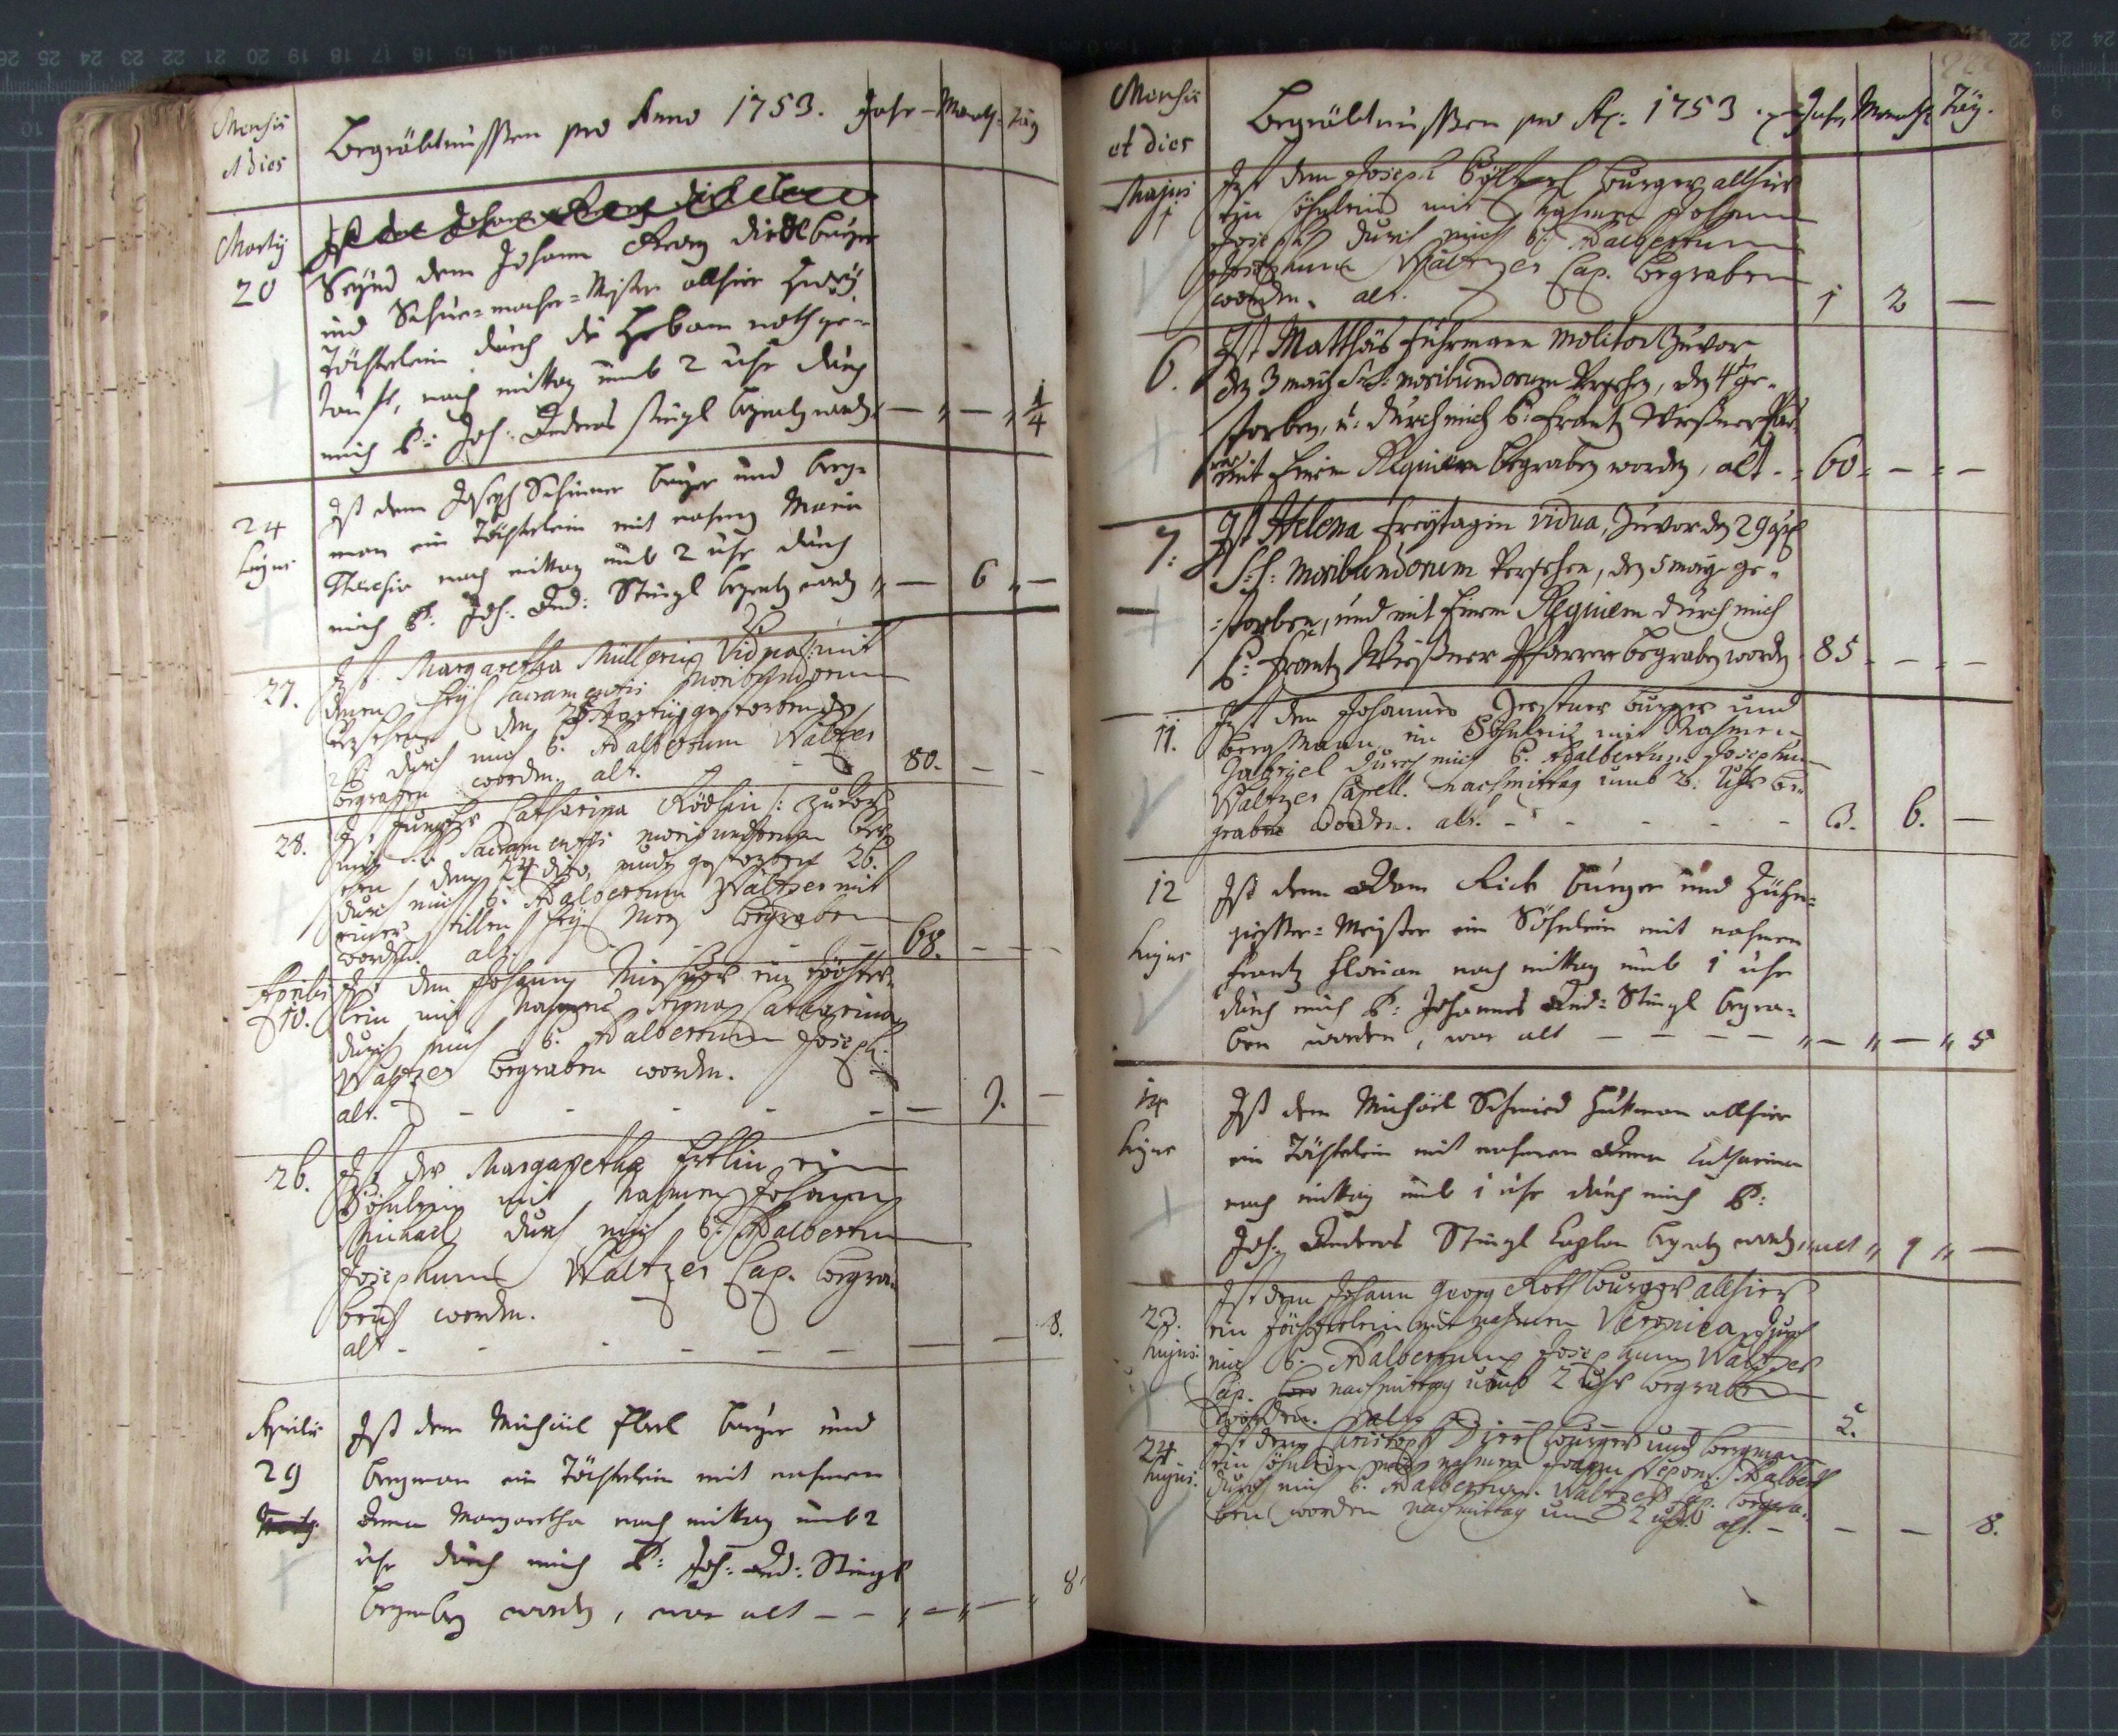 Mensis
et dies
Begräbtnussen pro Anno 1753. Jahr Month Täg
Martij
20
Seynd dem Johann Georg Dietl burger
und Schue=macher=Meister allhier zwey
Töchterlein durch die Hebam nothge-
taufft, nach mittag umb 2 uhr durch
mich P: Joh: Andreas Stingl begraben worden — „ — „ 1/4
24
hujus
Ist dem Joseph Schinner burger und berg-
man ein Töchterlein mit nahmen Maria
Theresia nach mittag umb 2 uhr durch
mich P: Joh: And: Stingl begraben worden „ — 6 „ —
27.
Ist Margaretha Müllerin Vidua: mit
denen heyl: Sacramentis moribundorum
versehen den Martij gestorben
durch mich P. Adalbertum Waltzer
begraben worden. alt. 80. — —
28.
Ist Catharina Rödlin: zuvor
mit S.S. Sacramentis moribundorum ver-
sehen, den 24 dito, gestorben 26.
durch mich P: Adalbertum Waltzer mit
einer stillen heyl: Mess begraben
worden. alt. 68. — —
Aprilis
10.
Ist dem Johann ein Töchter-
lein mit Nahmen Anna Catharina
durch mich P: Adalbertum Joseph:
Waltzer begraben worden.
alt. — — 9. —
26.
Ist der Margaretha Ertlin ein
Söhnlein mit Nahmen Johann
Michael durch mich P: Adalbertum
Josephum Waltzer Cap. begra-
ben worden.
alt — — — 8.
Aprilis
29
Ist dem Michäel burger und
bergman ein Töchterlein mit nahmen
Anna Margaretha nach mittag umb 2
uhr durch mich P: Joh: And: Stingl
begraben worden, war alt — — „ — „ — „ 8.
Mensis
et dies
Begräbtnussen pro Ao: 1753. Jahr Month Täg.
Majus
1
Ist dem Joseph burger allhier
ein Söhnlein mit Nahmen Johann
Joseph durch mich P: Adalbertum
Josephum Waltzer Cap. begraben
worden. alt. 1 2 —
6.
Ist Matthäs Fuhrmann Molitor Zuvor
den 3 maij S.S: moribundorum Versehen, den 4t ge-
storben, u: durch mich P: Frantz Weßner Pfar-
rer mit Einem Requiem begraben worden, alt - 60 - — - —
7:
Ist Helena Freÿtagin vidua, Zuvor den 29 april
S:S: Moribundorum Versehen, den 5 maij ge-
storben, und mit Einem Requiem durch mich
P: Frantz Weßner Pfarrer begraben worden 85 - — - —
11.
Ist dem Johannes Gerstner burger und
bergMann ein Söhnlein mit Nahmen
Gabrijel durch mich P. Adalbertum Josephum
Waltzer Capell. nachmittag umb 2. Uhr be-
graben worden. alt. - - - - - 3. 6. —
12
hujus
Ist dem Adam Rick burger und
giesser=Meister ein Söhnlein mit nahmen
Frantz Florian nach mittag umb 1 uhr
durch mich P: Johannes And: Stingl begra-
ben worden, war alt — — — — „ — „ — „ 5
14
hujus
Ist dem Michäel Schmied Hütman allhier
ein Töchterlein mit nahmen Anna Catharina
nach mittag umb 1 uhr durch mich P:
Joh: Andreas Stingl Caplan begraben worden, alt „ 9 „ —
23.
hujus:
Ist dem Johann Georg Roth burger allhier
ein Töchterlein mit nahmen Veronica durch
mich P: Adalbertum Josephum Waltzer
Cap. nachmittag umb 2 Uhr begraben
worden. alt 2.
24
hujus:
Ist dem Christoph Dietl burger und bergman
ein Söhnlein mit nahmen Joann Nepom: Adalbert
durch mich P. Adalbertum Waltzer Cap. begra-
ben worden nachmittag umb 2 uhr alt. — — — 8.